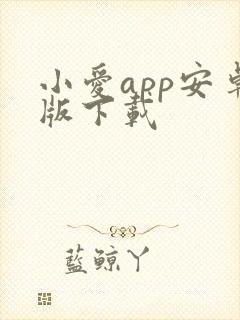 小愛app安卓
版下載
藍鯨丫